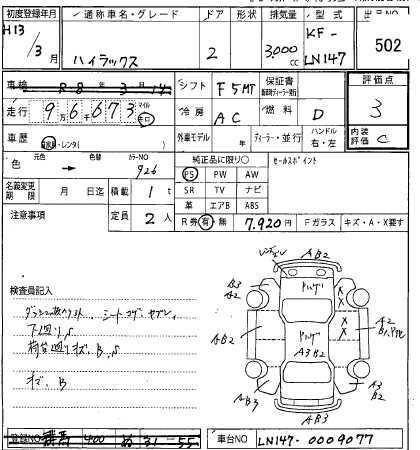 初度登録年月 通称車名・グレード ドア 形状 排気量 型式 出品NO
H13/3月 ハイラックス 2 3,000cc KF-LN147 502
車検 R8年3月14 シフト F5MT 保証書 評価点
走行 9万6千673 マイル キロ 冷房 AC 燃料 D 3
車歴 自家用・レンタ( ) 外車モデル 年 ディーラー・並行 ハンドル 右・左 内装評価 C
色 元色 → 色替 カラーNO 926 純正品に限り○ セールスポイント
PS PW AW
名義変更期限 月 日迄 積載 1t SR TV ナビ
革 エアB ABS
注意事項 定員 2人 R券 有・無 7,920円 Fガラス キズ・A・X要す
検査員記入
シートコゲ ヤブレ
下廻りS
キズ、B
レンズズレ AB2
B3 A2
ハガゲ
X X
AB2
A3B2
A2
A3 B2
AB3
AB3
登録NO 群馬 400 ぬ 31-55 車台NO LN147-0009077